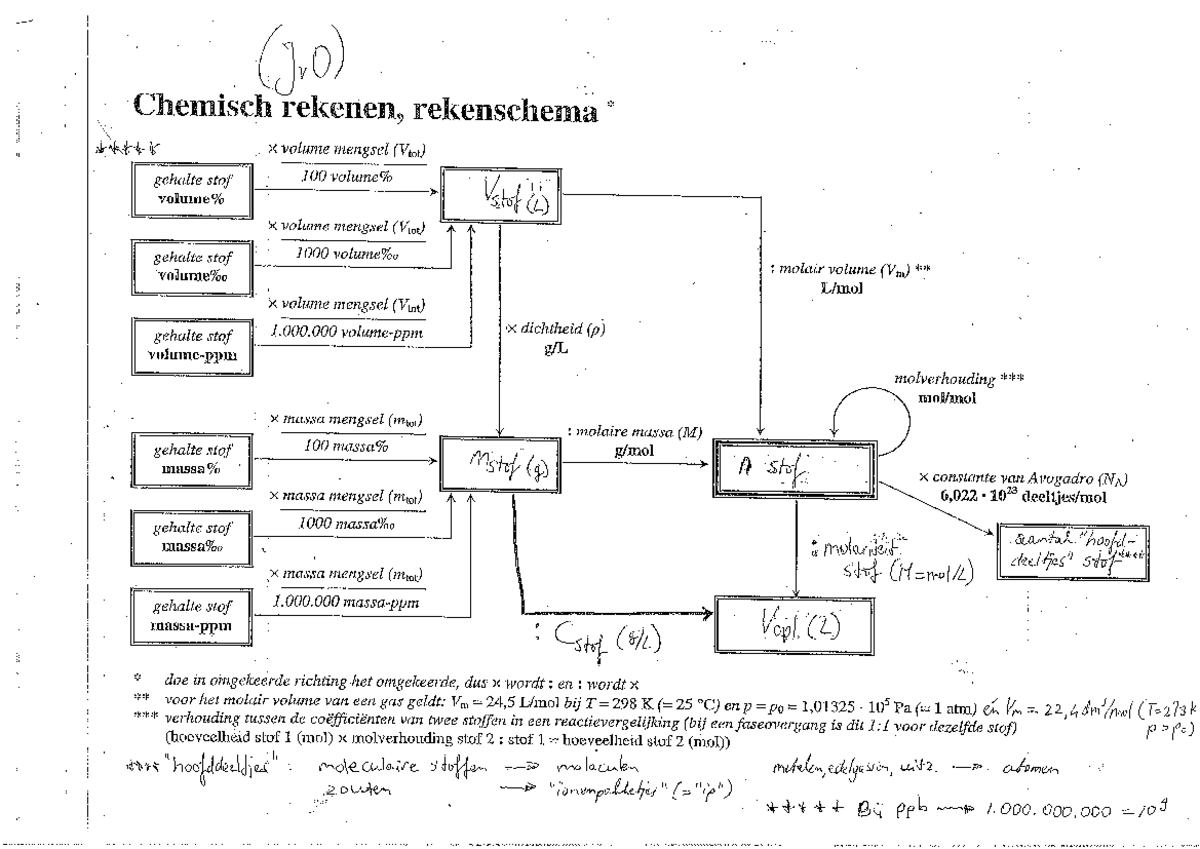 (J,O)
Chemisch rekenen, rekenschema *
*****
× volume mengsel (Vtot)
100 volume%
gehalte stof
volume%
Vstof (L)
× volume mengsel (Vtot)
1000 volume‰
gehalte stof
volume‰
: molair volume (Vm) **
L/mol
× volume mengsel (Vtot)
1.000.000 volume-ppm
gehalte stof
volume-ppm
× dichtheid (ρ)
g/L
molverhouding ***
mol/mol
× massa mengsel (mtot)
100 massa%
gehalte stof
massa%
mstof (g)
: molaire massa (M)
g/mol
n stof
× constante van Avogadro (NA)
6,022 · 10²³ deeltjes/mol
× massa mengsel (mtot)
1000 massa‰
gehalte stof
massa‰
aantal "hoofd-
deeltjes" stof ****
: molariteit
stof (M=mol/L)
× massa mengsel (mtot)
1.000.000 massa-ppm
gehalte stof
massa-ppm
: Cstof (g/L)
Vopl. (L)
* doe in omgekeerde richting het omgekeerde, dus × wordt : en : wordt ×
** voor het molair volume van een gas geldt: Vm = 24,5 L/mol bij T = 298 K (= 25 °C) en p = p0 = 1,01325 · 10⁵ Pa (= 1 atm) en Vm = 22,4 dm³/mol (T=273K
p = p0)
*** verhouding tussen de coëfficiënten van twee stoffen in een reactievergelijking (bij een faseovergang is dit 1:1 voor dezelfde stof)
(hoeveelheid stof 1 (mol) × molverhouding stof 2 : stof 1 = hoeveelheid stof 2 (mol))
**** "hoofddeeltjes" : moleculaire stoffen → moleculen metalen, edelgassen, enz. → atomen
zouten → "ionenpakketjes" (= "ip")
***** Bij ppb → 1.000.000.000 = 10⁹